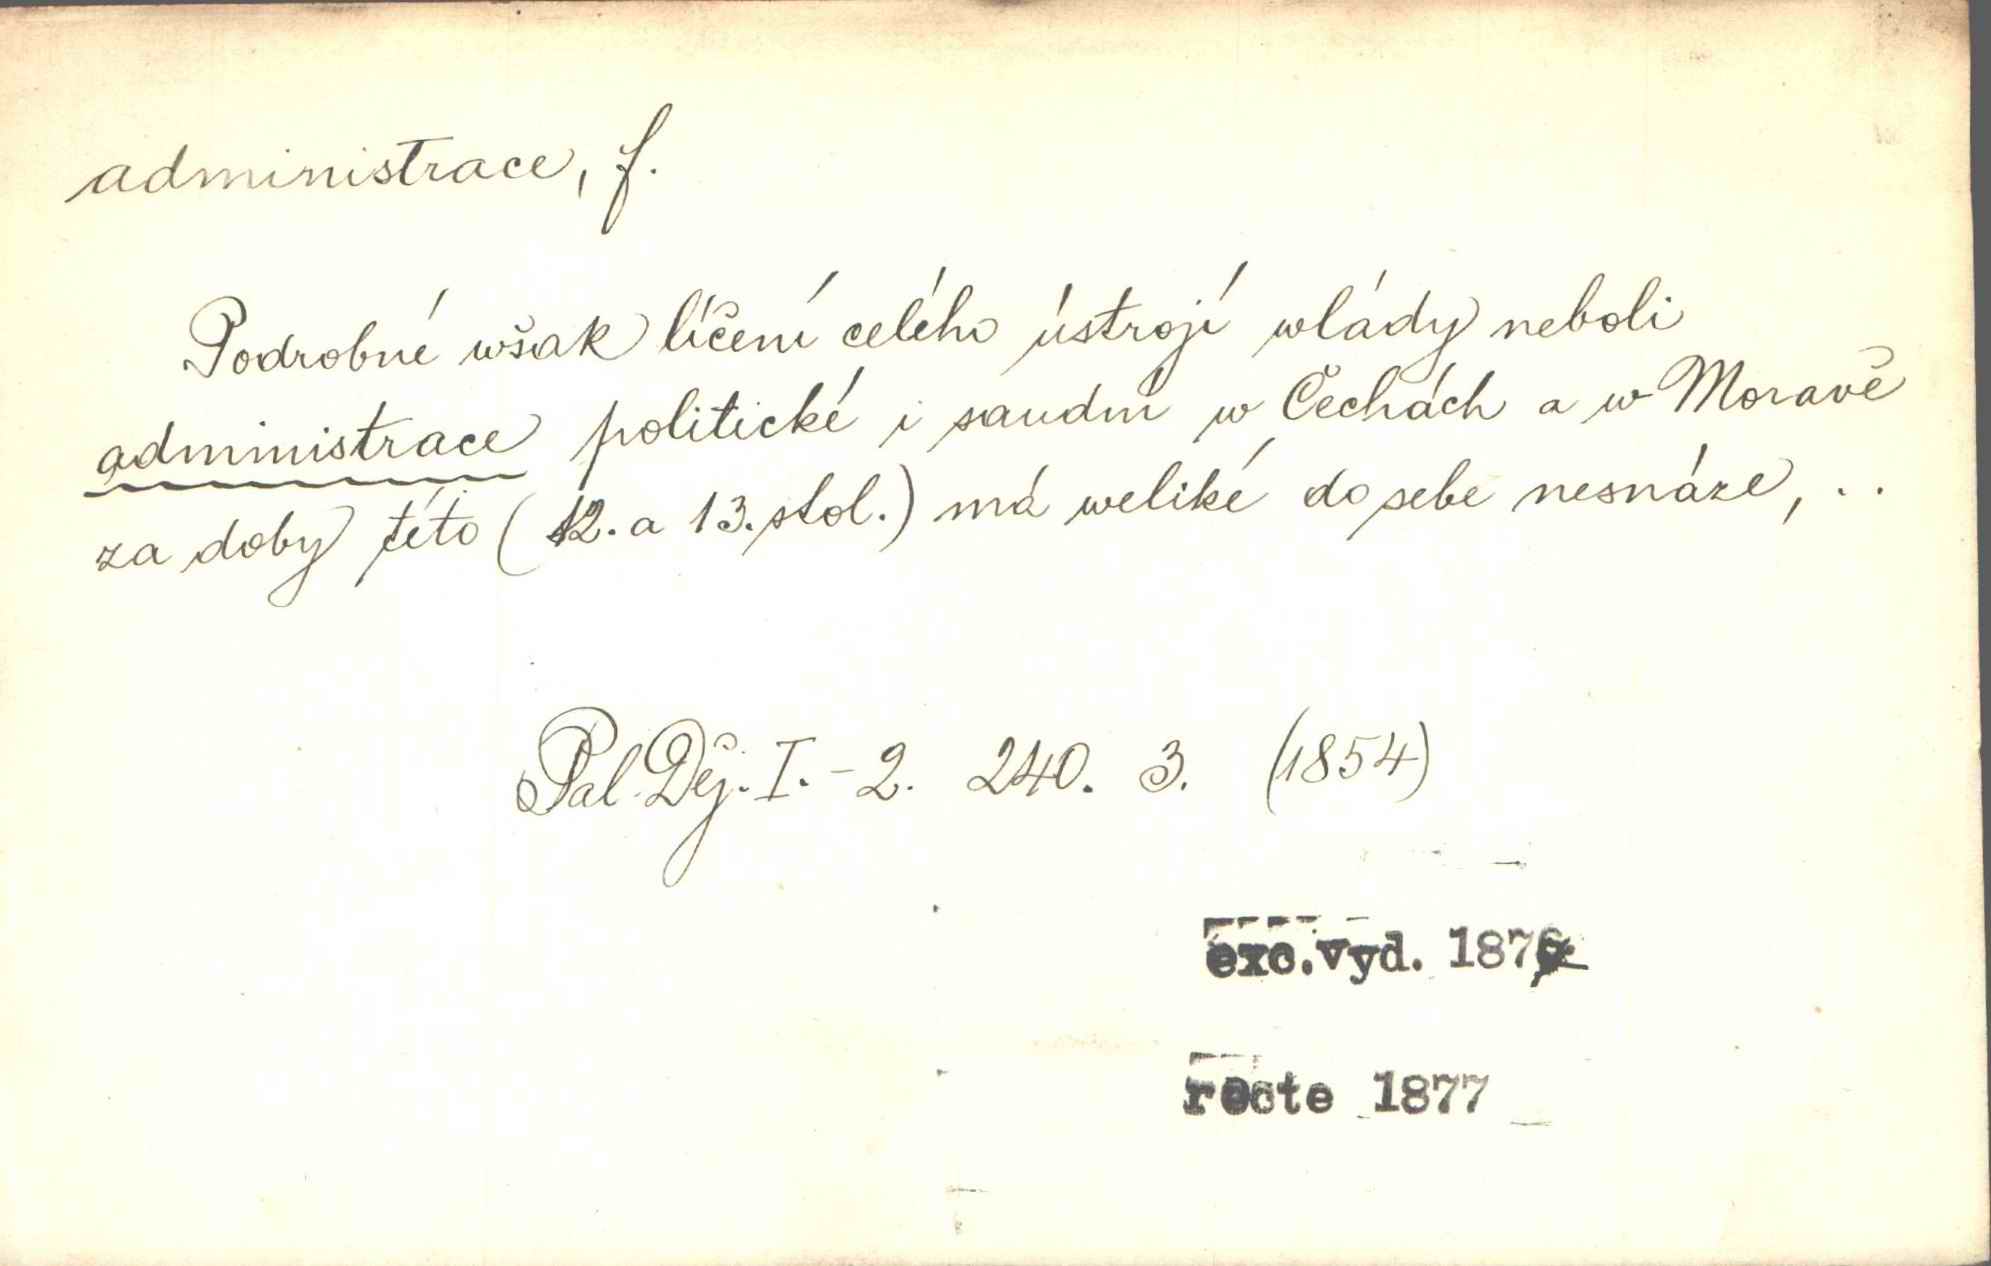 administrace, f.
Podrobné wšak líčení celého ústrojí wlády neboli
administrace politické i saudní w Čechách a w Moravě
za doby této (12. a 13. stol.) má weliké do sebe nesnáze, ..
Pal. Děj. I. - 2. 240. 3. (1854)
exc.vyd. 187
recte 1877